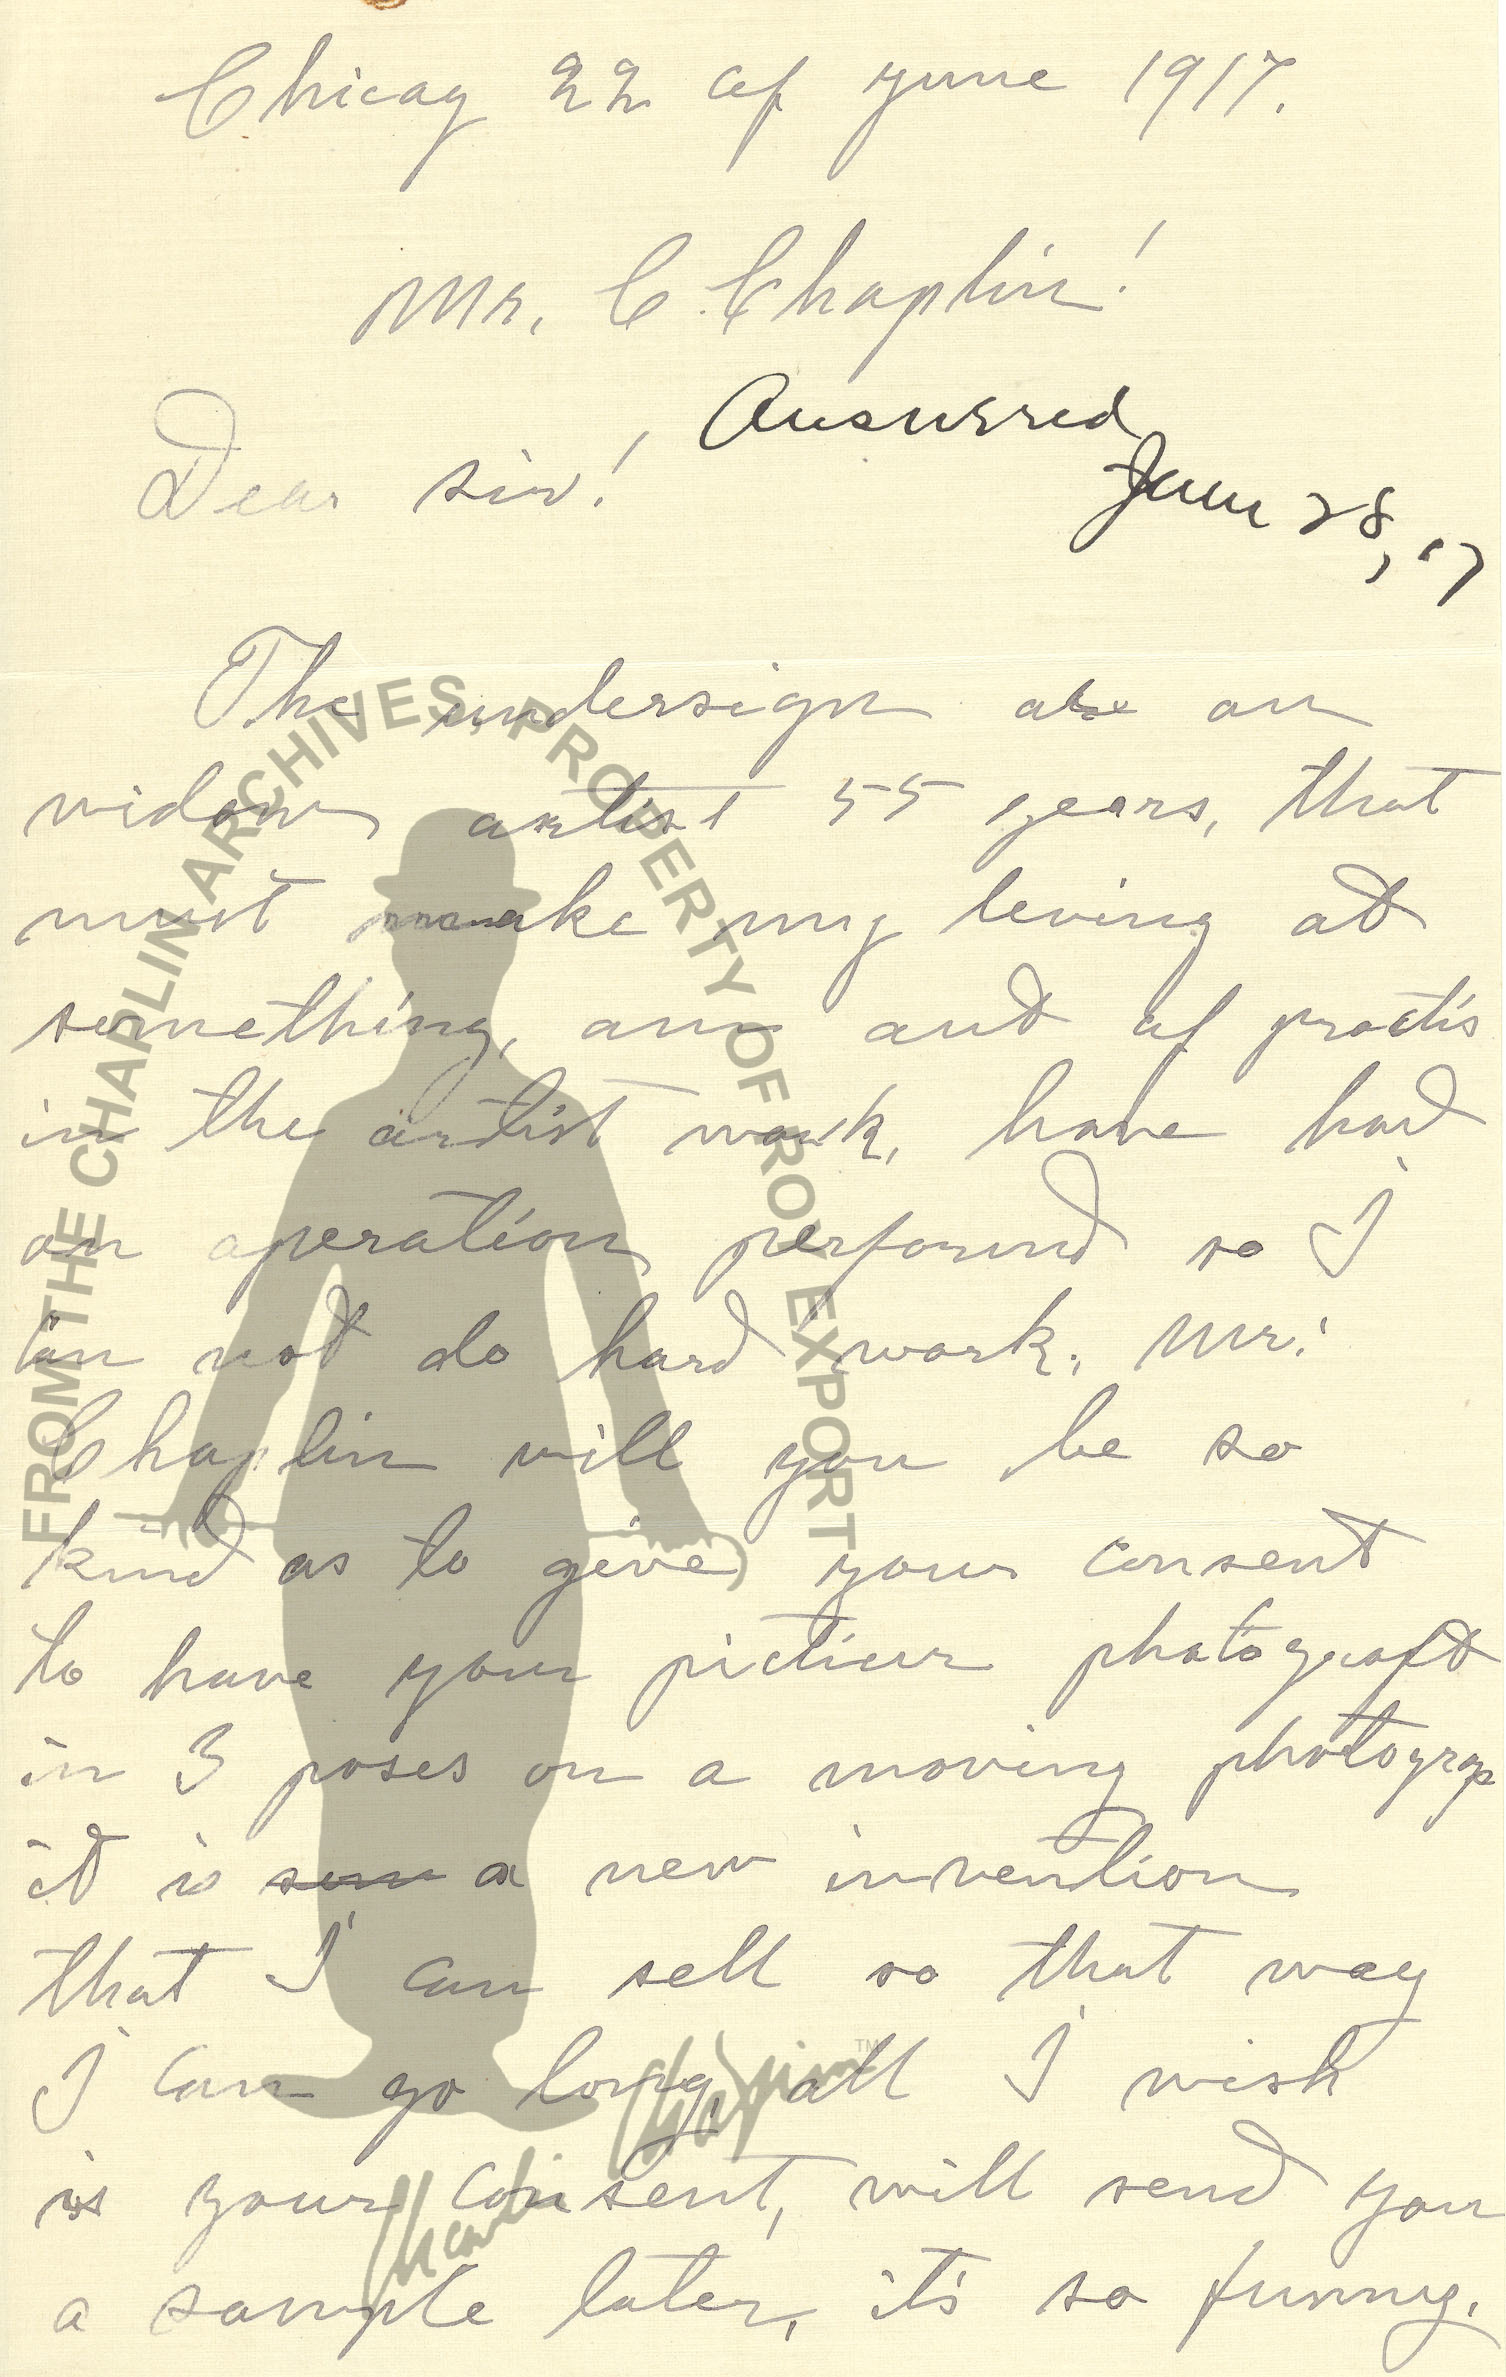 Chicag 22 af yune 1917.
Mr. C. Chaplin!
Answered
Dear sir!
June 28, '17
The undersign are an
vidow artist 55 years, that
must make my leving at
something, am aut af practis
in the artist work, have had
an aperation perfornd so I
can not do hard work. Mr:
Chaplin will you be so
kind as to give your consent
to have your pictiur photograft
in 3 poses on a moving photograp
it is a new invention
that I can sell so that way
I can go long, all I wish
is your consent, will send you
a sample later, it's so funny.
FROM THE CHAPLIN ARCHIVES, PROPERTY OF ROY EXPORT
Charlie Chaplin™